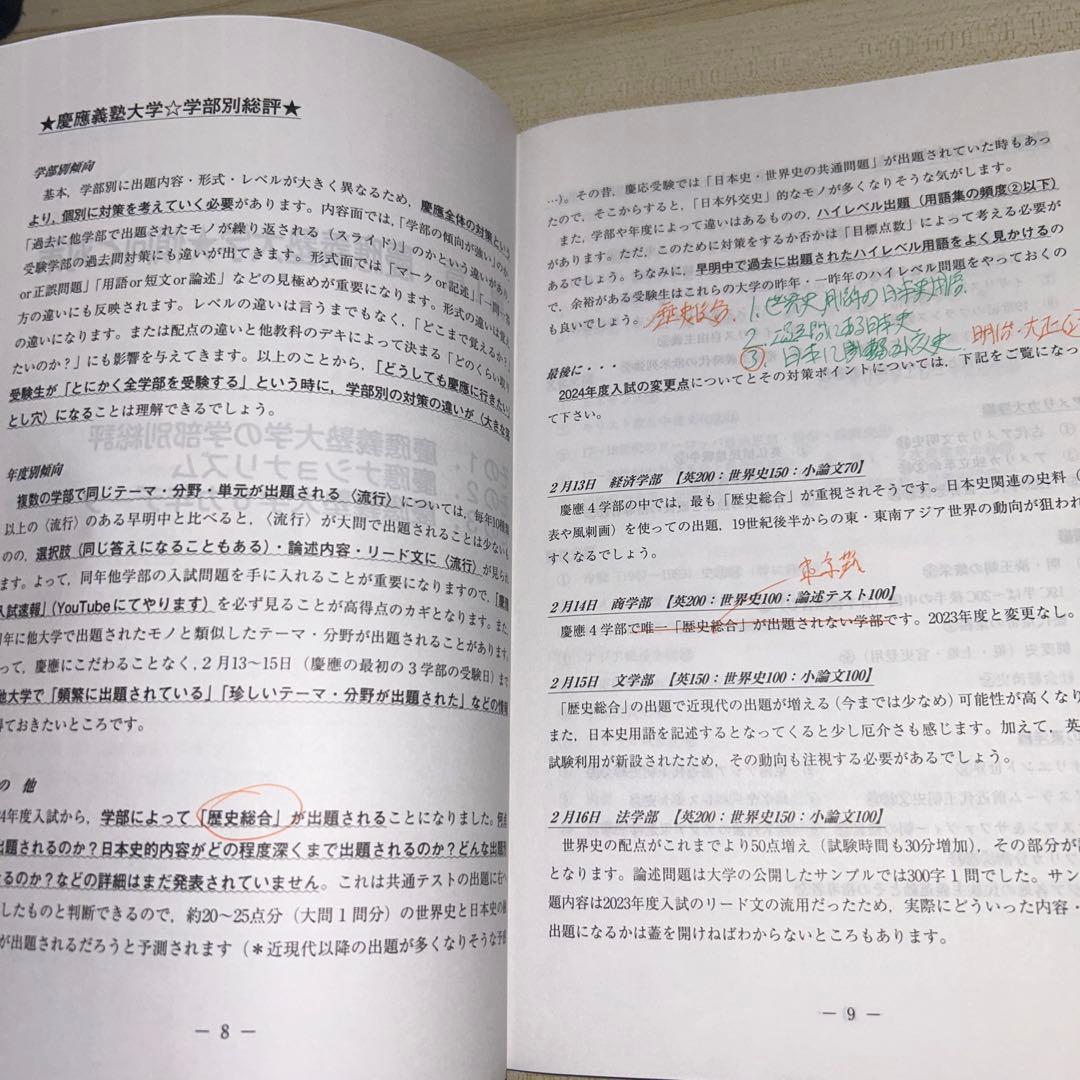 ★慶應義塾大学☆学部別総評★
学部別傾向
基本，学部別に出題内容・形式・レベルが大きく異なるため，慶應全体の対策という
より，個別に対策を考えていく必要があります。内容面では，「学部の傾向が強い」のか
「過去に他学部で出題されたモノが繰り返される（スライド）」のかという違いがあり，
受験学部の過去問対策にも違いが出てきます。形式面では「マークor記述」「一問一答
or正誤問題」「用語or短文or論述」などの見極めが重要になります。形式の違いは覚え
方の違いにも反映されます。レベルの違いは言うまでもなく，「どこまで覚えるか？
たいのか？」にも影響を与えてきます。または配点の違いと他教科のデキによって決まる「どのくらい取り
の違いになります。以上のことから，「どうしても慶應に行きたい」
受験生が「とにかく全学部を受験する」という時に，学部別の対策の違いが〈大きな落
とし穴〉になることは理解できるでしょう。
年度別傾向
複数の学部で同じテーマ・分野・単元が出題される〈流行〉については，毎年10種類
以上の〈流行〉のある早明中と比べると，〈流行〉が大問で出題されることは少ないも
のの，選択肢（同じ答えになることもある）・論述内容・リード文に〈流行〉が見られ
ます。よって，同年他学部の入試問題を手に入れることが重要になりますので，「慶應
入試速報」（YouTubeにてやります）を必ず見ることが高得点のカギとなります。また
年に他大学で出題されたモノと類似したテーマ・分野が出題されることがあります。
って，慶應にこだわることなく，2月13〜15日（慶應の最初の3学部の受験日）まで
他大学で「頻繁に出題されている」「珍しいテーマ・分野が出題された」などの情報
得ておきたいところです。
の 他
24年度入試から，学部によって「歴史総合」が出題されることになりました。何点
出題されるのか？日本史的内容がどの程度深くまで出題されるのか？どんな出題形
るのか？などの詳細はまだ発表されていません。これは共通テストの出題に右へ
したものと判断できるので，約20〜25点分（大問1問分）の世界史と日本史の
が出題されるだろうと予測されます（＊近現代以降の出題が多くなりそうな予感
― 8 ―
…）。その昔，慶応受験では「日本史・世界史の共通問題」が出題されていた時もあっ
たので，そこからすると，「日本外交史」的なモノが多くなりそうな気がします。
また，学部や年度によって違いはあるものの，ハイレベル出題（用語集の頻度②以下）
があります。ただ，このために対策をするか否かは「目標点数」によって考える必要が
あるでしょう。ちなみに，早明中で過去に出題されたハイレベル用語をよく見かけるの
で，余裕がある受験生はこれらの大学の昨年・一昨年のハイレベル問題をやっておくの
も良いでしょう。
歴史総合
1. 世界史用語の日本史用語
2. 過去問にある日本史
③. 日本に関わる外交史
明治・大正
最後に・・・
2024年度入試の変更点についてとその対策ポイントについては，下記をご覧になっ
て下さい。
2月13日 経済学部 【英200：世界史150：小論文70】
慶應4学部の中では，最も「歴史総合」が重視されそうです。日本史関連の史料（
表や風刺画）を使っての出題，19世紀後半からの東・東南アジア世界の動向が狙われ
すくなるでしょう。
2月14日 商学部 【英200：世界史100：論述テスト100】
慶應4学部で唯一「歴史総合」が出題されない学部です。2023年度と変更なし。
2月15日 文学部 【英150：世界史100：小論文100】
「歴史総合」の出題で近現代の出題が増える（今までは少なめ）可能性が高くなり
また，日本史用語を記述するとなってくると少し厄介さも感じます。加えて，英
試験利用が新設されたため，その動向も注視する必要があるでしょう。
2月16日 法学部 【英200：世界史150：小論文100】
世界史の配点がこれまでより50点増え（試験時間も30分増加），その部分が
となります。論述問題は大学の公開したサンプルでは300字1問でした。サン
題内容は2023年度入試のリード文の流用だったため，実際にどういった内容・
出題になるかは蓋を開けねばわからないところもあります。
― 9 ―